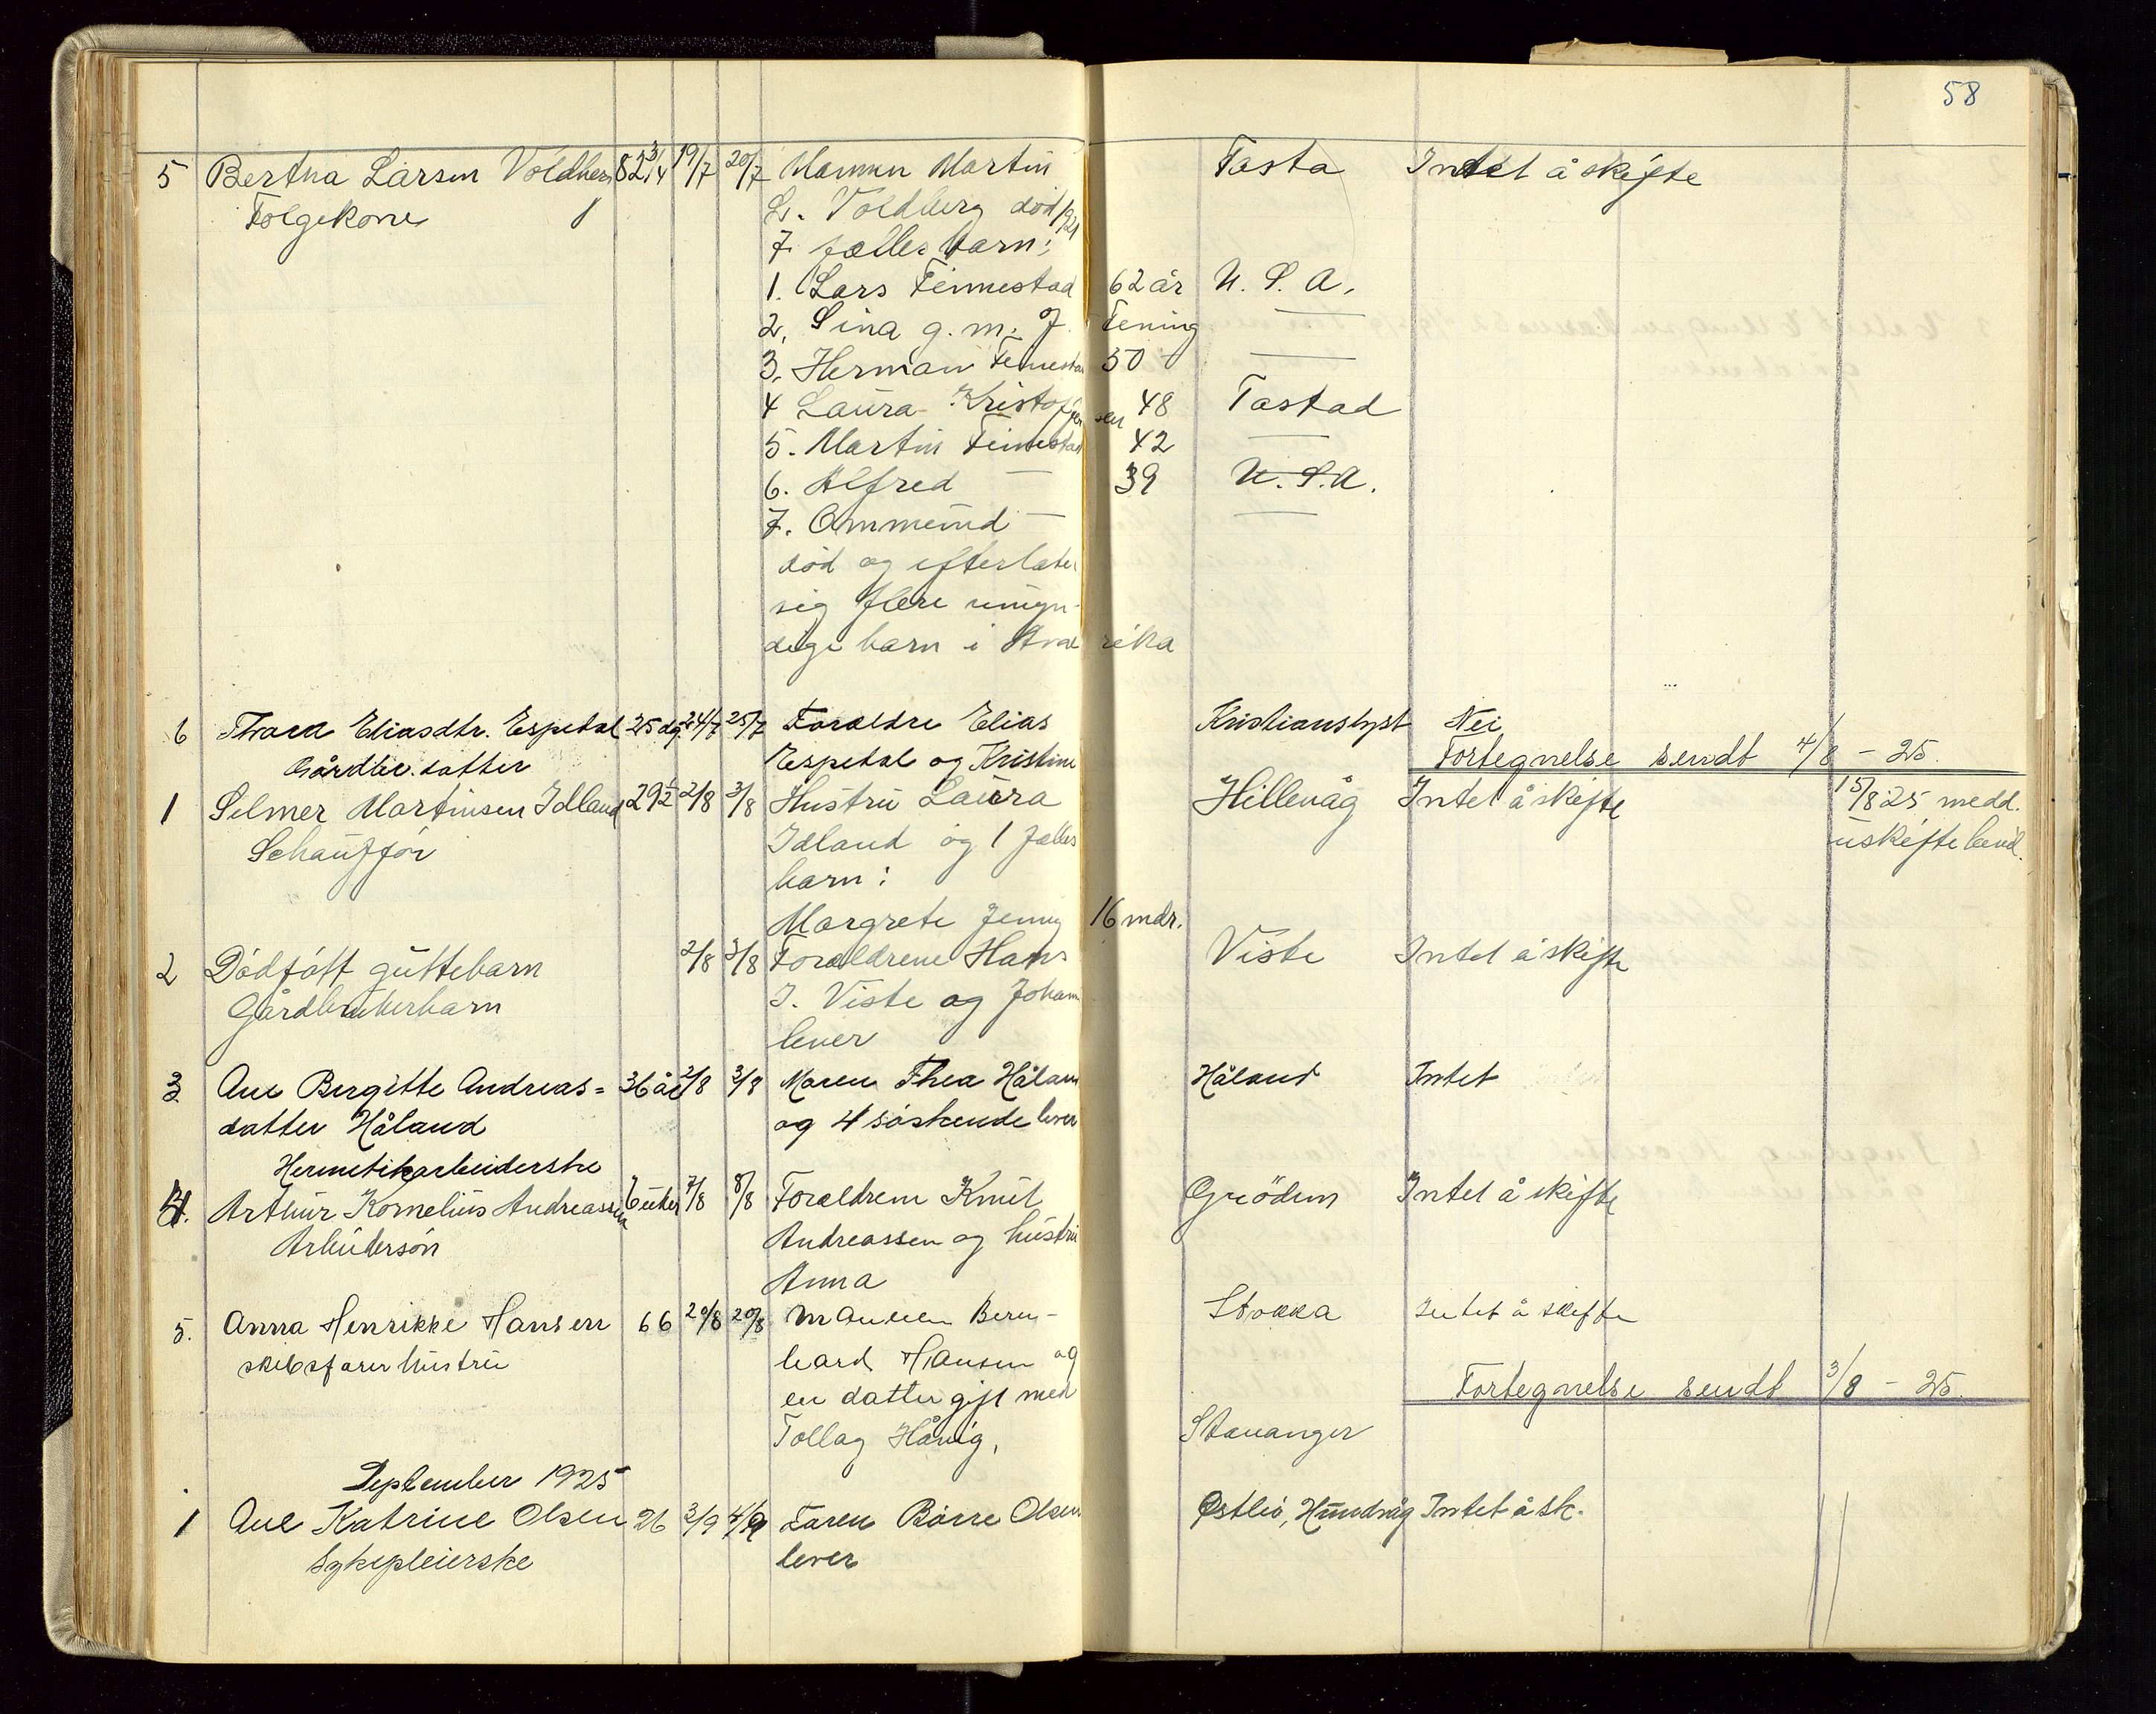 58
5 Bertha Larsen Voldberg 82 3/4 19/7 20/7 Mannen Martin Tasta Intet å skifte
Følgekone L. Voldberg død 1921
7 fælles barn:
1. Lars Finnestad 62 år U. S. A.
2. Sina g. m. J. Tening —
3. Herman Finnestad 50 —
4 Laura Kristoffersen 48 Tastad
5. Martin Finnestad 42 —
6. Alfred — 39 U. S. A.
7. Ommund — —
død og efterlater
sig flere umyn-
dige barn i Amerika
6 Thora Eliasdtr. Espedal 25 dg. 24/7 25/7 Forældre Elias Kristianslyst Nei
Gårdbr. datter Espedal og Kristine Fortegnelse sendt 4/8 - 25.
1 Selmer Martinsen Idland 29 1/2 2/8 3/8 Hustru Laura Hillevåg Intet å skifte 15/8 25 medd.
Schauffør Idland og 1 fælles uskiftebevil.
barn:
Margrete Jenny 16 mdr.
2 Dødfött guttebarn 2/8 3/8 Forældrene Hans Viste Intet å skifte
Gårdbrukerbarn I. Viste og Johanne
lever
3 Ane Birgitte Andreas= 36 år 2/8 3/8 Maren Thea Håland Håland Intet
datter Håland og 4 søskende lever
Hermetikarbeiderske
4. Arthur Kornelius Andreassen 6 uker 7/8 8/8 Forældrene Knut Grödem Intet å skifte
Arbeidersøn Andreassen og hustru
Anna
5. Anna Henrikke Hansen 66 20/8 20/8 Mannen Bern- Stokka Intet å skifte
skibsfører hustru hard Hansen og
en datter gift med Fortegnelse sendt 3/8 - 25.
Tollag Håvig, Stavanger
September 1925
1 Ane Katrine Olsen 26 3/9 4/9 Faren Børre Olsen Østbø, Hundvåg Intet å sk.
Sykepleierske lever